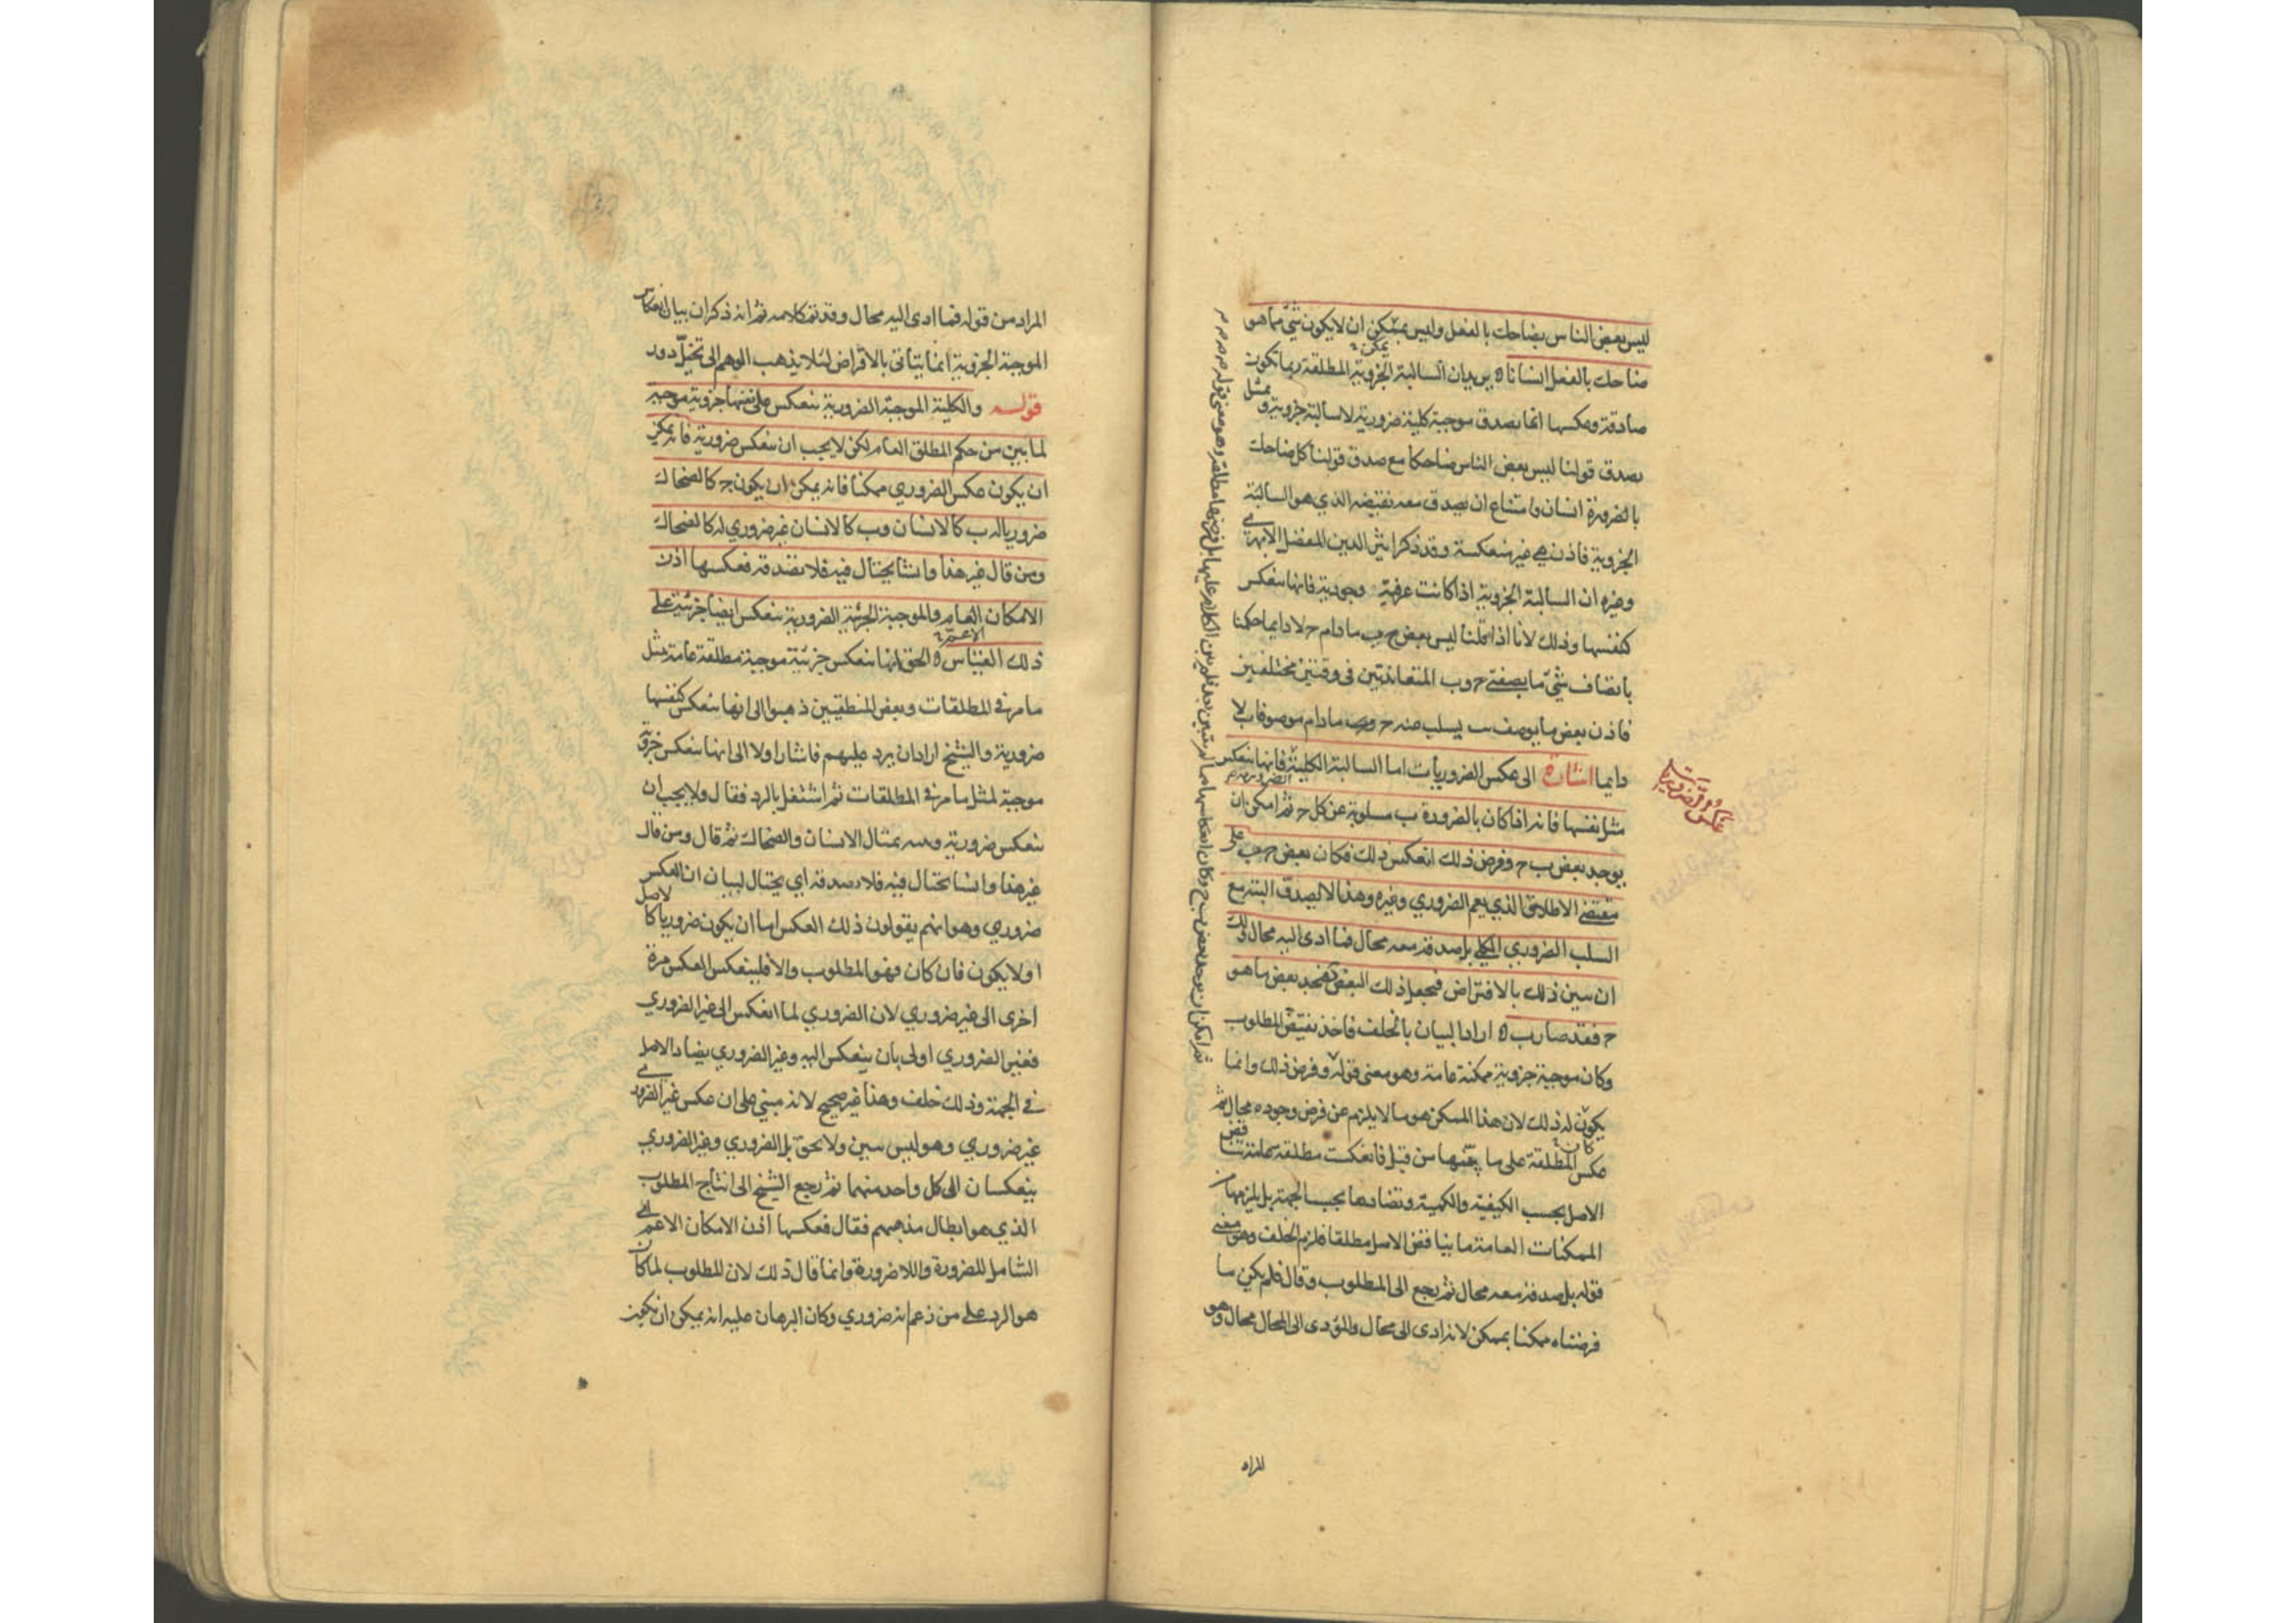 ليس بعض الناس بضاحك بالفعل وليس بممكن ان لا يكون شئ مما هو
ضاحك بالفعل انسانا ه يريد بيان السالبة الجزوية المطلقة ربما تكون
صادقة وعكسها انما يصدق موجبة كلية ضرورية لا سالبة جزوية ويمثل
بصدق قولنا ليس بعض الناس ضاحكا مع صدق قولنا كل ضاحك
بالضرورة انسان وامتناع ان يصدق معه نقيضه الذي هو السالبة
الجزوية فاذن هي غير منعكسة وقد ذكر اثير الدين المفضل الابهري
وغيره ان السالبة الجزوية اذا كانت عرفية وجودية فانها تنعكس
كنفسها وذلك لانا اذا قلنا ليس بعض ج ب ما دام ج لا دايما حكمنا
باتصاف شئ ما بصفتي ج وب المتعاندتين في وقتين مختلفين
فاذن بعض ما يوصف ب يسلب عنه ج ما دام موصوفا ب لا
دايما اشارة الى عكس الضروريات اما السالبة الكلية الضرورية فانها تنعكس
عكس ضروريات
مثل نفسها فانه اذا كان بالضرورة ب مسلوبة عن كل ج ثم امكن ان
يوجد بعض ب ج وفرض ذلك انعكس ذلك فكان بعض ج ب على
مقتضى الاطلاق الذي يعم الضروري وغيره وهذا لا يصدق البتة مع
السلب الضروري الكلي بل صدقه معه محال فما ادى اليه محال ولك
ان تبين ذلك بالافتراض فتجعل ذلك البعض فتجد بعض ما هو
ج فقد صار ب ه اراد البيان بالخلف فاخذ نقيض المطلوب
وكان موجبة جزوية ممكنة عامة وهو معنى قوله وفرض ذلك وانما
يكون له ذلك لان هذا الممكن هو ما لا يلزم عن فرض وجوده محال ثم
عكس المطلقة على ما بينها من قبل فانعكست مطلقة عامة تناقض
الاصل بحسب الكيفية والكمية وتضادها بحسب الجهة بل يلزمها من
الممكنات العامة ما يناقض الاصل مطلقا فلزم الخلف وهو معنى
قوله بل صدقه معه محال ثم رجع الى المطلوب وقال فلم يكن ما
فرضناه ممكنا بممكن لانه ادى الى محال والمؤدى الى المحال محال وهو
المراد
المراد من قوله فما ادى اليه محال وقد تم كلامه ثم انه ذكر ان بيان انعكاس
الموجبة الجزوية انما يتأتى بالافتراض لئلا يذهب الوهم الى تخيل دور
قوله والكلية الموجبة الضرورية تنعكس على نفسها جزوية موجبة
لما بين من حكم المطلق العام لكن لا يجب ان تنعكس ضرورية فانه يمكن
ان يكون عكس الضروري ممكنا فانه يمكن ان يكون ج كالضحاك
ضروريا له ب كالانسان وب كالانسان غير ضروري له كالضحاك
ومن قال غير هذا وانشا يحتال فيه فلا تصدقه فعكسها اذن
الامكان الاعم العام والموجبة الجزئية الضرورية تنعكس ايضا جزئية على
ذلك القياس ه الحق انها تنعكس جزئية موجبة مطلقة عامة بمثل
ما مر في المطلقات وبعض المنطقيين ذهبوا الى انها تنعكس كنفسها
ضرورية والشيخ اراد ان يرد عليهم فاشار اولا الى انها تنعكس جزوية
موجبة لمثل ما مر في المطلقات ثم اشتغل بالرد فقال ولا يجب ان
تنعكس ضرورية وبينه بمثال الانسان والضحاك ثم قال ومن قال
غير هذا وانشا يحتال فيه فلا تصدقه اي يحتال لبيان ان العكس
ضروري وهو انهم يقولون ذلك العكس اما ان يكون ضروريا كالاصل
او لا يكون فان كان فهو المطلوب والا فلينعكس العكس مرة
اخرى الى غير ضروري لان الضروري لما انعكس الى غير الضروري
فغير الضروري اولى بان ينعكس اليه وغير الضروري يضاد الاصل
في الجهة وذلك خلف وهذا غير صحيح لانه مبني على ان عكس غير الضروري
غير ضروري وهو ليس ببين ولا بحق بل الضروري وغير الضروري
ينعكسان الى كل واحد منهما ثم رجع الشيخ الى انتاج المطلوب
الذي هو ابطال مذهبهم فقال فعكسها اذن الامكان الاعم اي
الشامل للضرورة واللاضرورة وانما قال ذلك لان المطلوب لما كان
هو الرد على من زعم انه ضروري وكان البرهان عليه انه يمكن ان يكون